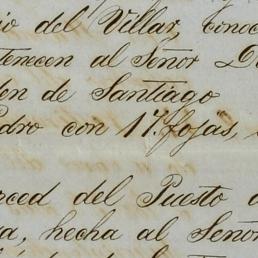 io del Villar, Conoc
tenecen al Señor D
den de Santiago
edro con 17. fojas,
erced del Puesto
a, hecha al Seño